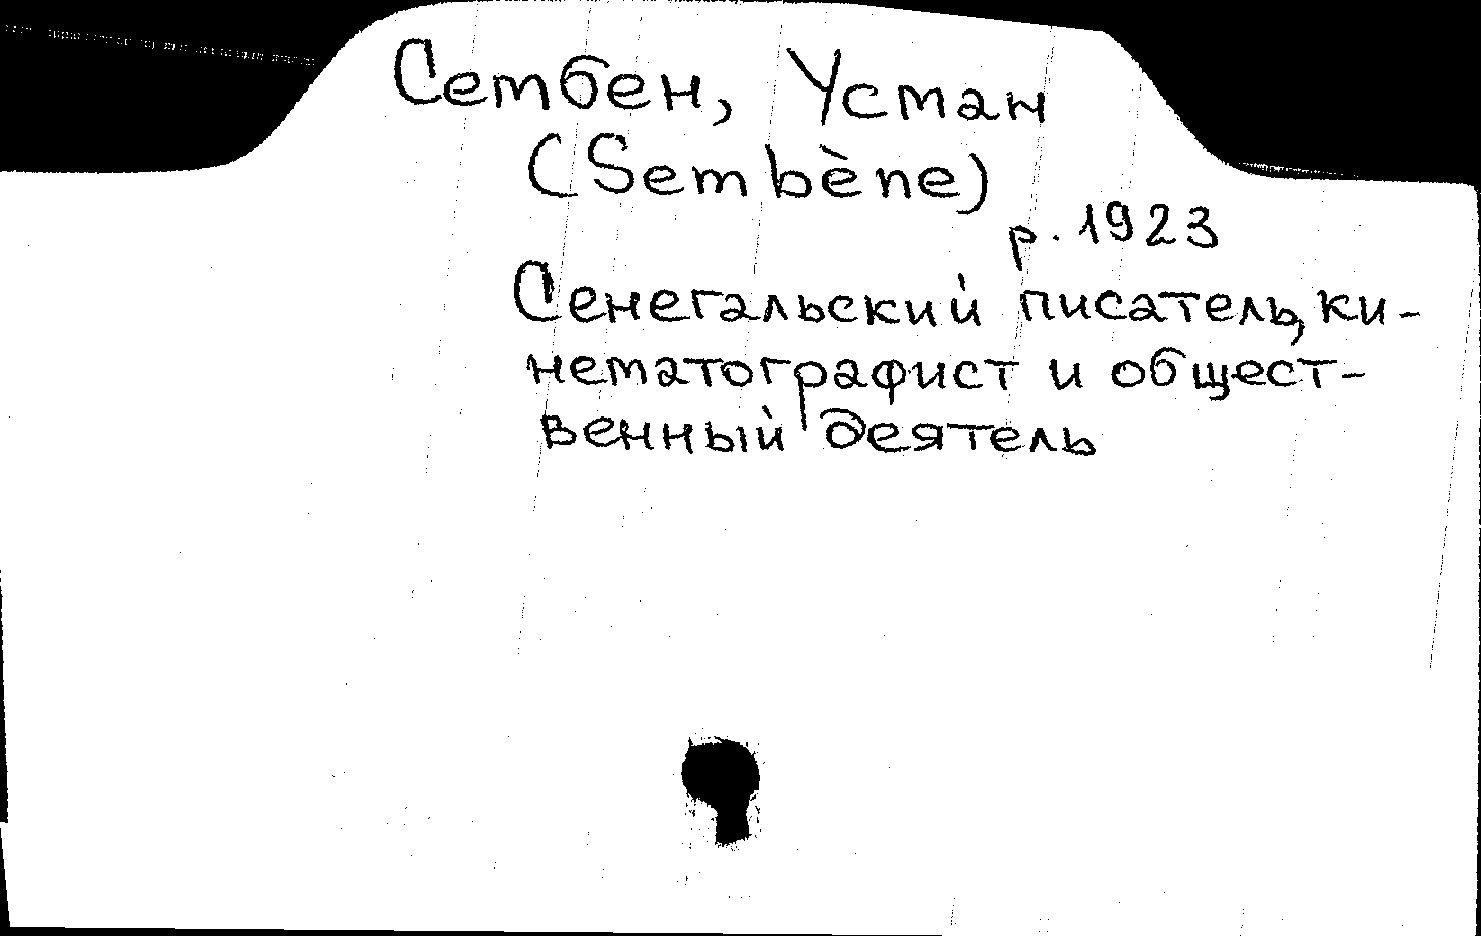 Сембен, Усман
(Sembène)
р. 1923
Сенегальский писатель, ки-
нематографист и общест-
венный деятель